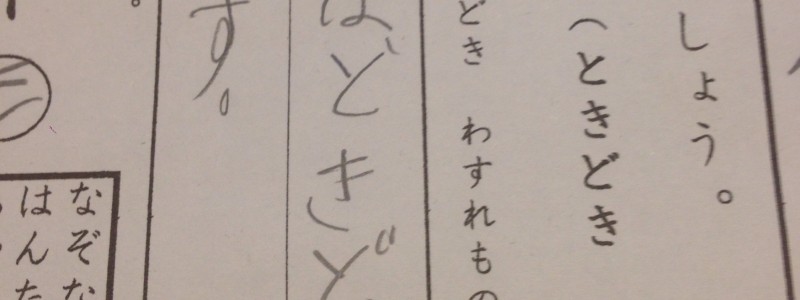 しょう。
(ときどき
どき　わすれもの
は、ときど
す。
なぞな
はんた